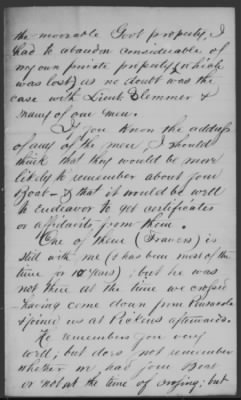 the moveable Govt property, I
had to abandon considerable of
my own private property (which
was lost) as no doubt was the
case with Lieut Slemmer &
many of our men.
If you know the address
of any of the men, I should
think that they would be more
likely to remember about your
Boat - & that it would be well
to endeavor to get certificates
or affidavits from them.
One of them (Travers) is
still with me (& has been most of the
time for 10 years); but he was
not there at the time we crossed
having come down from Pensacola
& joined us at Pickens afterwards.
He remembers you very
well; but does not remember
whether we had your Boat
or not at the time of crossing; but